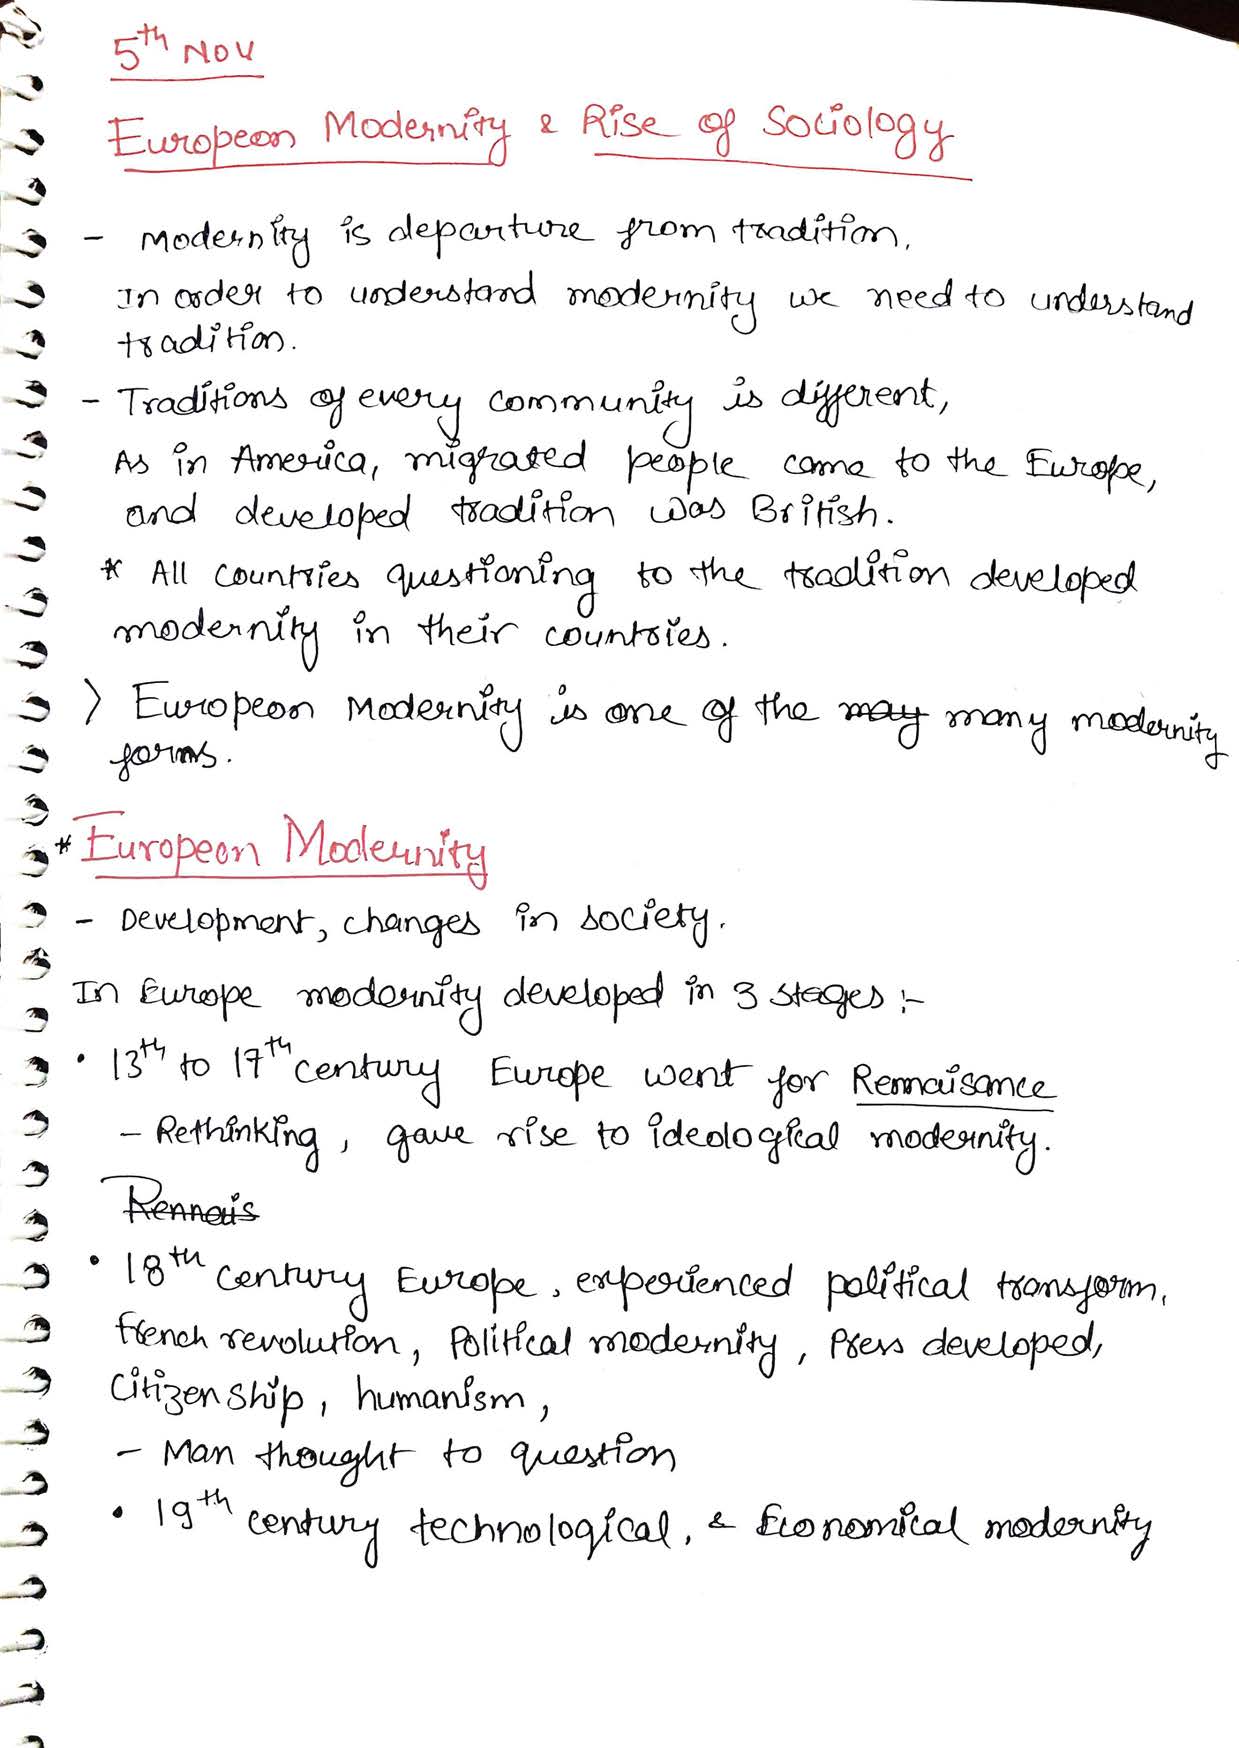 5th Nov
European Modernity & Rise of Sociology
- Modernity is departure from tradition.
In order to understand modernity we need to understand
tradition.
- Traditions of every community is different,
As in America, migrated people came to the Europe,
and developed tradition was British.
* All countries questioning to the tradition developed
modernity in their countries.
> European Modernity is one of the may many modernity
forms.
* European Modernity
- Development, changes in society.
In Europe modernity developed in 3 stages :-
• 13th to 17th century Europe went for Rennaisance
- Rethinking, gave rise to ideological modernity.
Rennais
• 18th century Europe, experienced political transform,
french revolution, Political modernity, Press developed,
Citizenship, humanism,
- Man thought to question
• 19th century technological, & Economical modernity